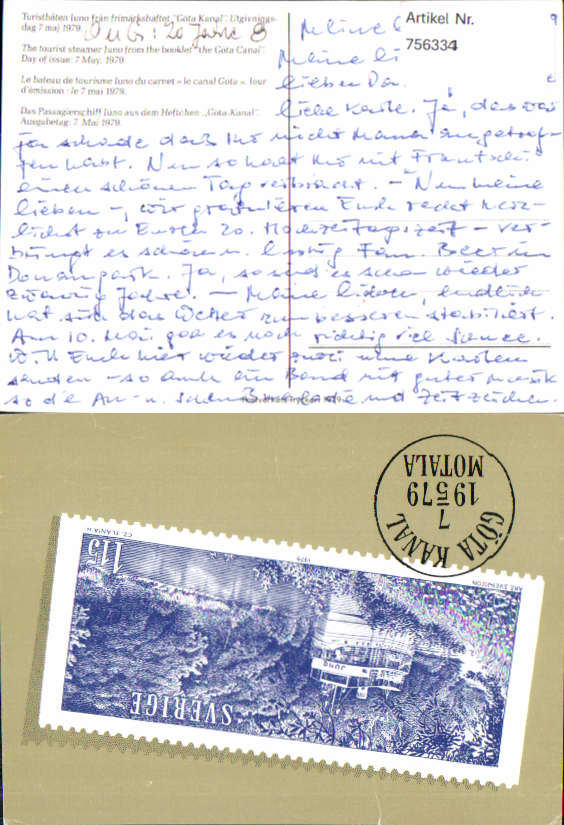 Turistbåten Juno från frimärkshäftet "Göta Kanal". Utgivnings-
dag 7 maj 1979.
The tourist steamer Juno from the booklet "the Göta Canal".
Day of issue: 7 May, 1979.
Le bateau de tourisme Juno du carnet « le canal Göta ». Jour
d'émission : le 7 mai 1979.
Das Passagierschiff Juno aus dem Heftchen „Göta-Kanal".
Ausgabetag: 7. Mai 1979.
20 Jahre
Artikel Nr.
756334
Meine
Meine li
lieben Da
liebe Karte. Ja, das war
ja schade daß Ihr nicht Mama angetrof-
fen habt. Nun so habt Ihr mit
einen schönen Tag verbracht. – Nun meine
lieben –, wir gratulieren Euch recht herz-
lichst zu Eurem 20. Hochzeitstagszeit – ver-
bringt es schön u. lustig
Donaupark. Ja, so sind es schon wieder
zwanzig Jahre. – Meine lieben, endlich
hat sich das Wetter zum besseren stabilisiert.
Am 10. Mai gab es noch richtig viel Schnee.
Will Euch hier wieder zwei neue Karten
senden – so auch ein Band mit guter Musik
so die An- u. und Zeitzeichen.
GÖTA KANAL
7
19 5 79
MOTALA
115
SVERIGE
JUNO
1979
ARE SVENSSON
CZ. SLANIA SC.